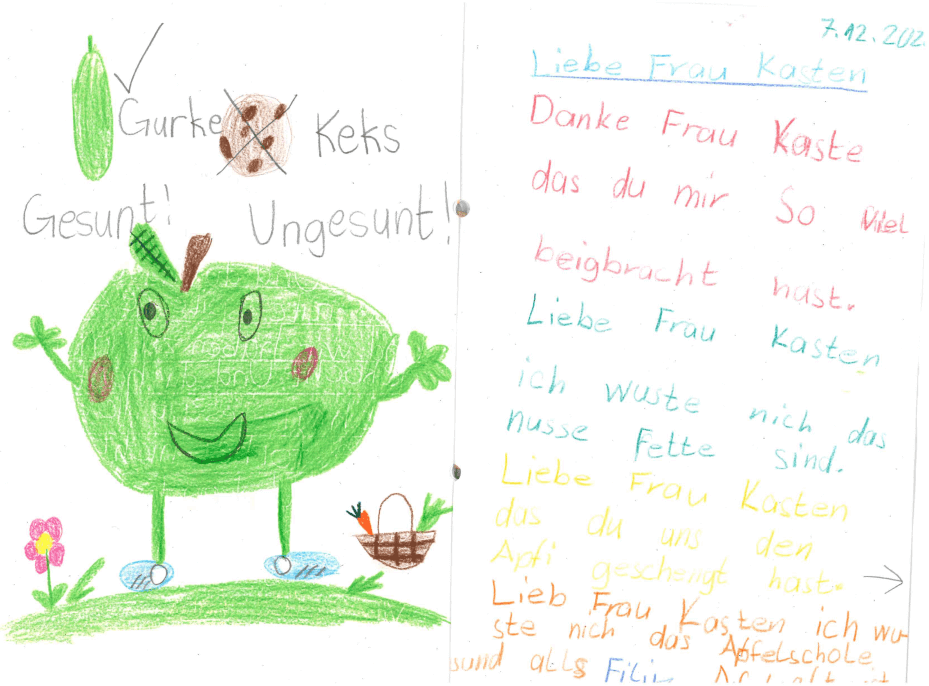 Gurke
Keks
Gesunt!
Ungesunt!
7.12.202
Liebe Frau Kasten
Danke Frau Kaste
das du mir So Viel
beigbracht hast.
Liebe Frau Kasten
ich wuste nich das
nusse Fette sind.
Liebe Frau Kasten
das du uns den
Apfi geschengt hast.
Lieb Frau Kasten ich wu-
ste nich das Apfelschole
sund alls